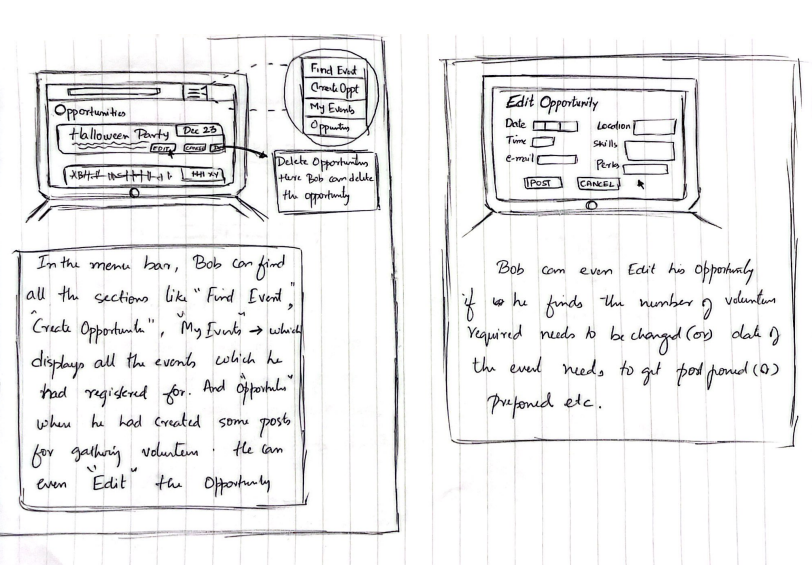 Opportunities
Halloween Party
Dec 23
EDIT
CANCEL
Find Event
Create Oppt
My Events
Delete Opportunities
Here Bob can delete
the opportunity
In the menu bar, Bob can find
all the sections like "Find Event,"
"Create Opportunite", "My Events" → which
displays all the events which he
had registered for. And "Opportuites"
where he had created some posts
for gathering volunteers. He can
even "Edit" the Opportunity
Edit Opportunity
Date
Location
Time
Skills
e-mail
Perks
POST
CANCEL
Bob can even Edit his Opportunity
if he finds the number of volunteers
required needs to be changed (or) date of
the event needs to get postponed (or)
preponed etc.